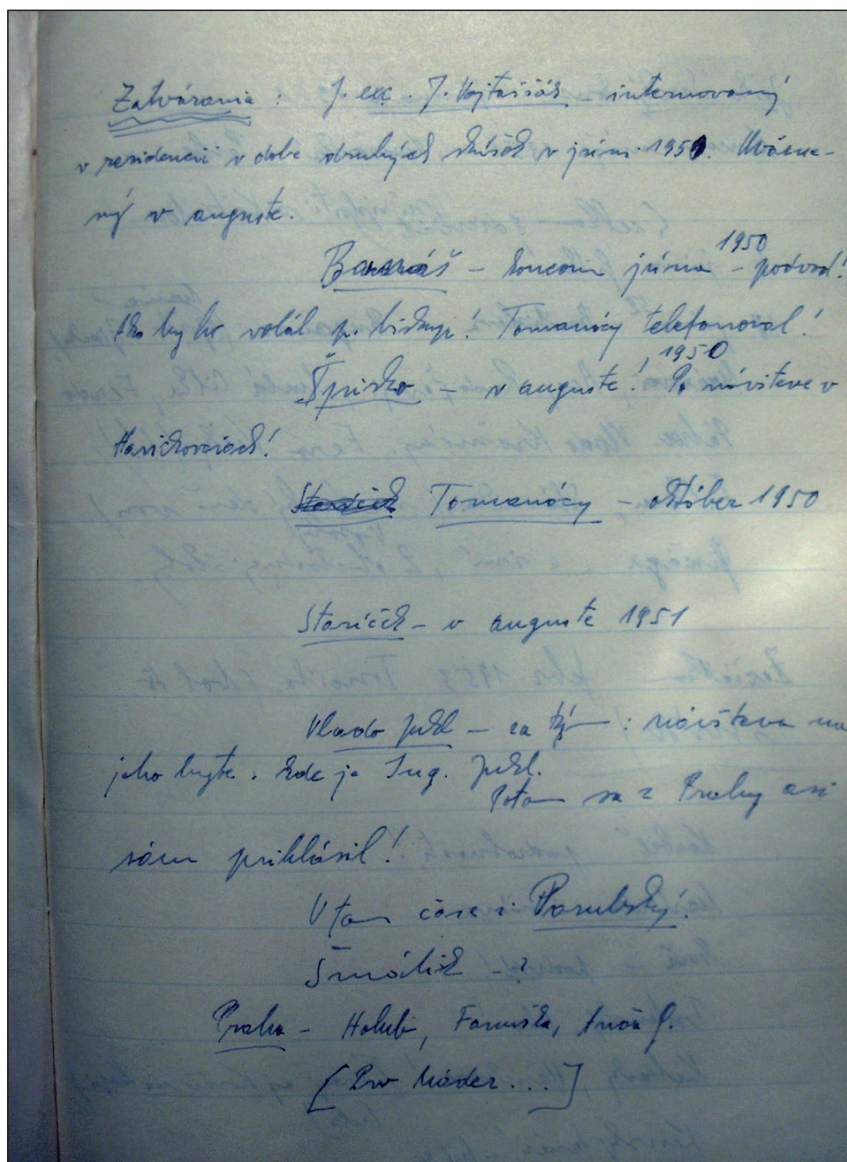 Zatvárania : J. exc. J. Vojtaššák – internovaný
v residencii v dobe druhých skúšok v júni 1950. Uväzne-
ný v auguste.
Barnáš – koncom júna 1950 – podvod!
Ako by ho volal p. biskup! Tomanócy telefonoval!
Špirko – v auguste! 1950 Po návšteve v
Harichovciach!
Tomanócy – október 1950
Stariček – v auguste 1951
Vlado Jukl – za tým : návšteva na
jeho byte. Kde je Ing. Jukl.
Potom sa z Prahy asi
sám prihlásil!
V tom čase i Porubský!
Šmálik – ?
Praha – Holub, Fanuška,